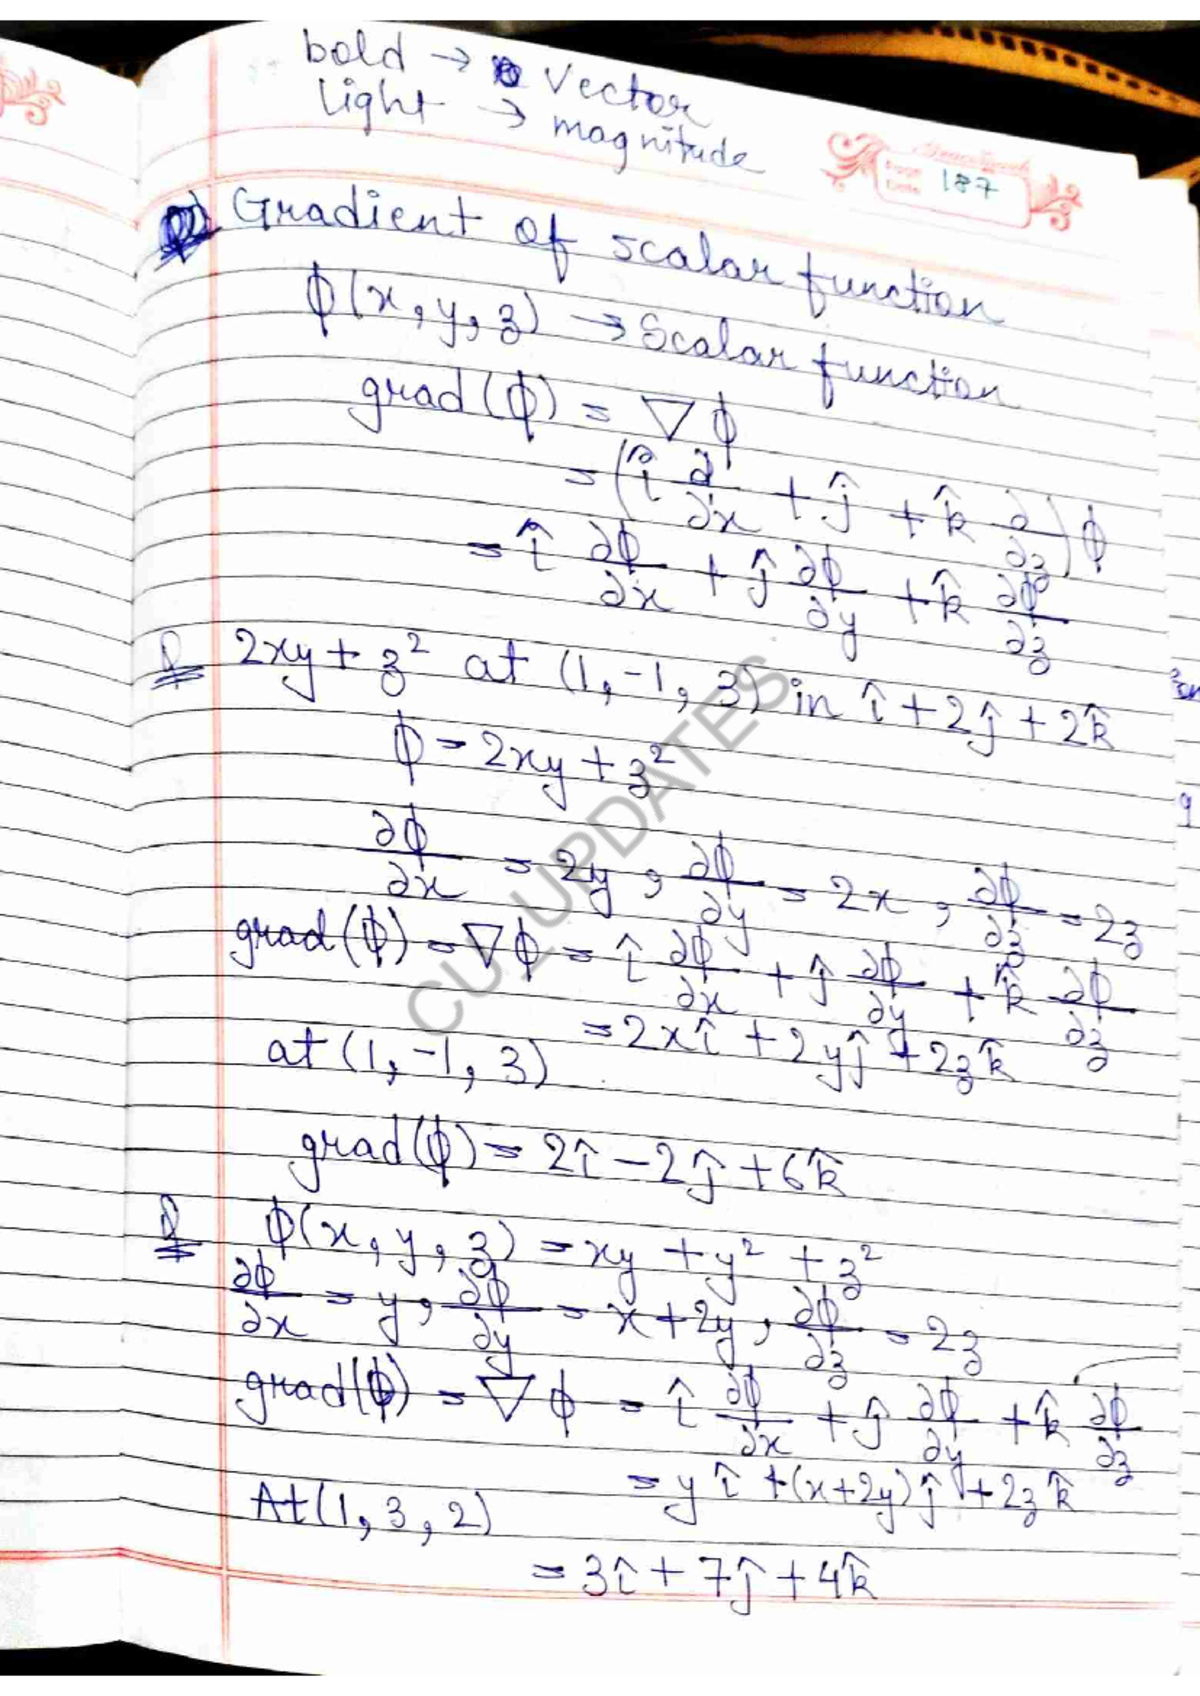 bold → Vector
light → magnitude
Page
Date 187
Gradient of scalar function
ϕ(x, y, z) → Scalar function
grad(ϕ) = ∇ϕ
= (î ∂/∂x + ĵ + k̂ ∂/∂z)ϕ
= î ∂ϕ/∂x + ĵ ∂ϕ/∂y + k̂ ∂ϕ/∂z
Q 2xy + z² at (1, -1, 3) in î + 2ĵ + 2k̂
ϕ = 2xy + z²
∂ϕ/∂x = 2y, ∂ϕ/∂y = 2x, ∂ϕ/∂z = 2z
grad(ϕ) = ∇ϕ = î ∂ϕ/∂x + ĵ ∂ϕ/∂y + k̂ ∂ϕ/∂z
= 2xî + 2yĵ + 2zk̂
at (1, -1, 3)
grad(ϕ) = 2î - 2ĵ + 6k̂
Q ϕ(x, y, z) = xy + y² + z²
∂ϕ/∂x = y, ∂ϕ/∂y = x + 2y, ∂ϕ/∂z = 2z
grad(ϕ) = ∇ϕ = î ∂ϕ/∂x + ĵ ∂ϕ/∂y + k̂ ∂ϕ/∂z
= yî + (x + 2y)ĵ + 2zk̂
At (1, 3, 2)
= 3î + 7ĵ + 4k̂
CU_UPDATES